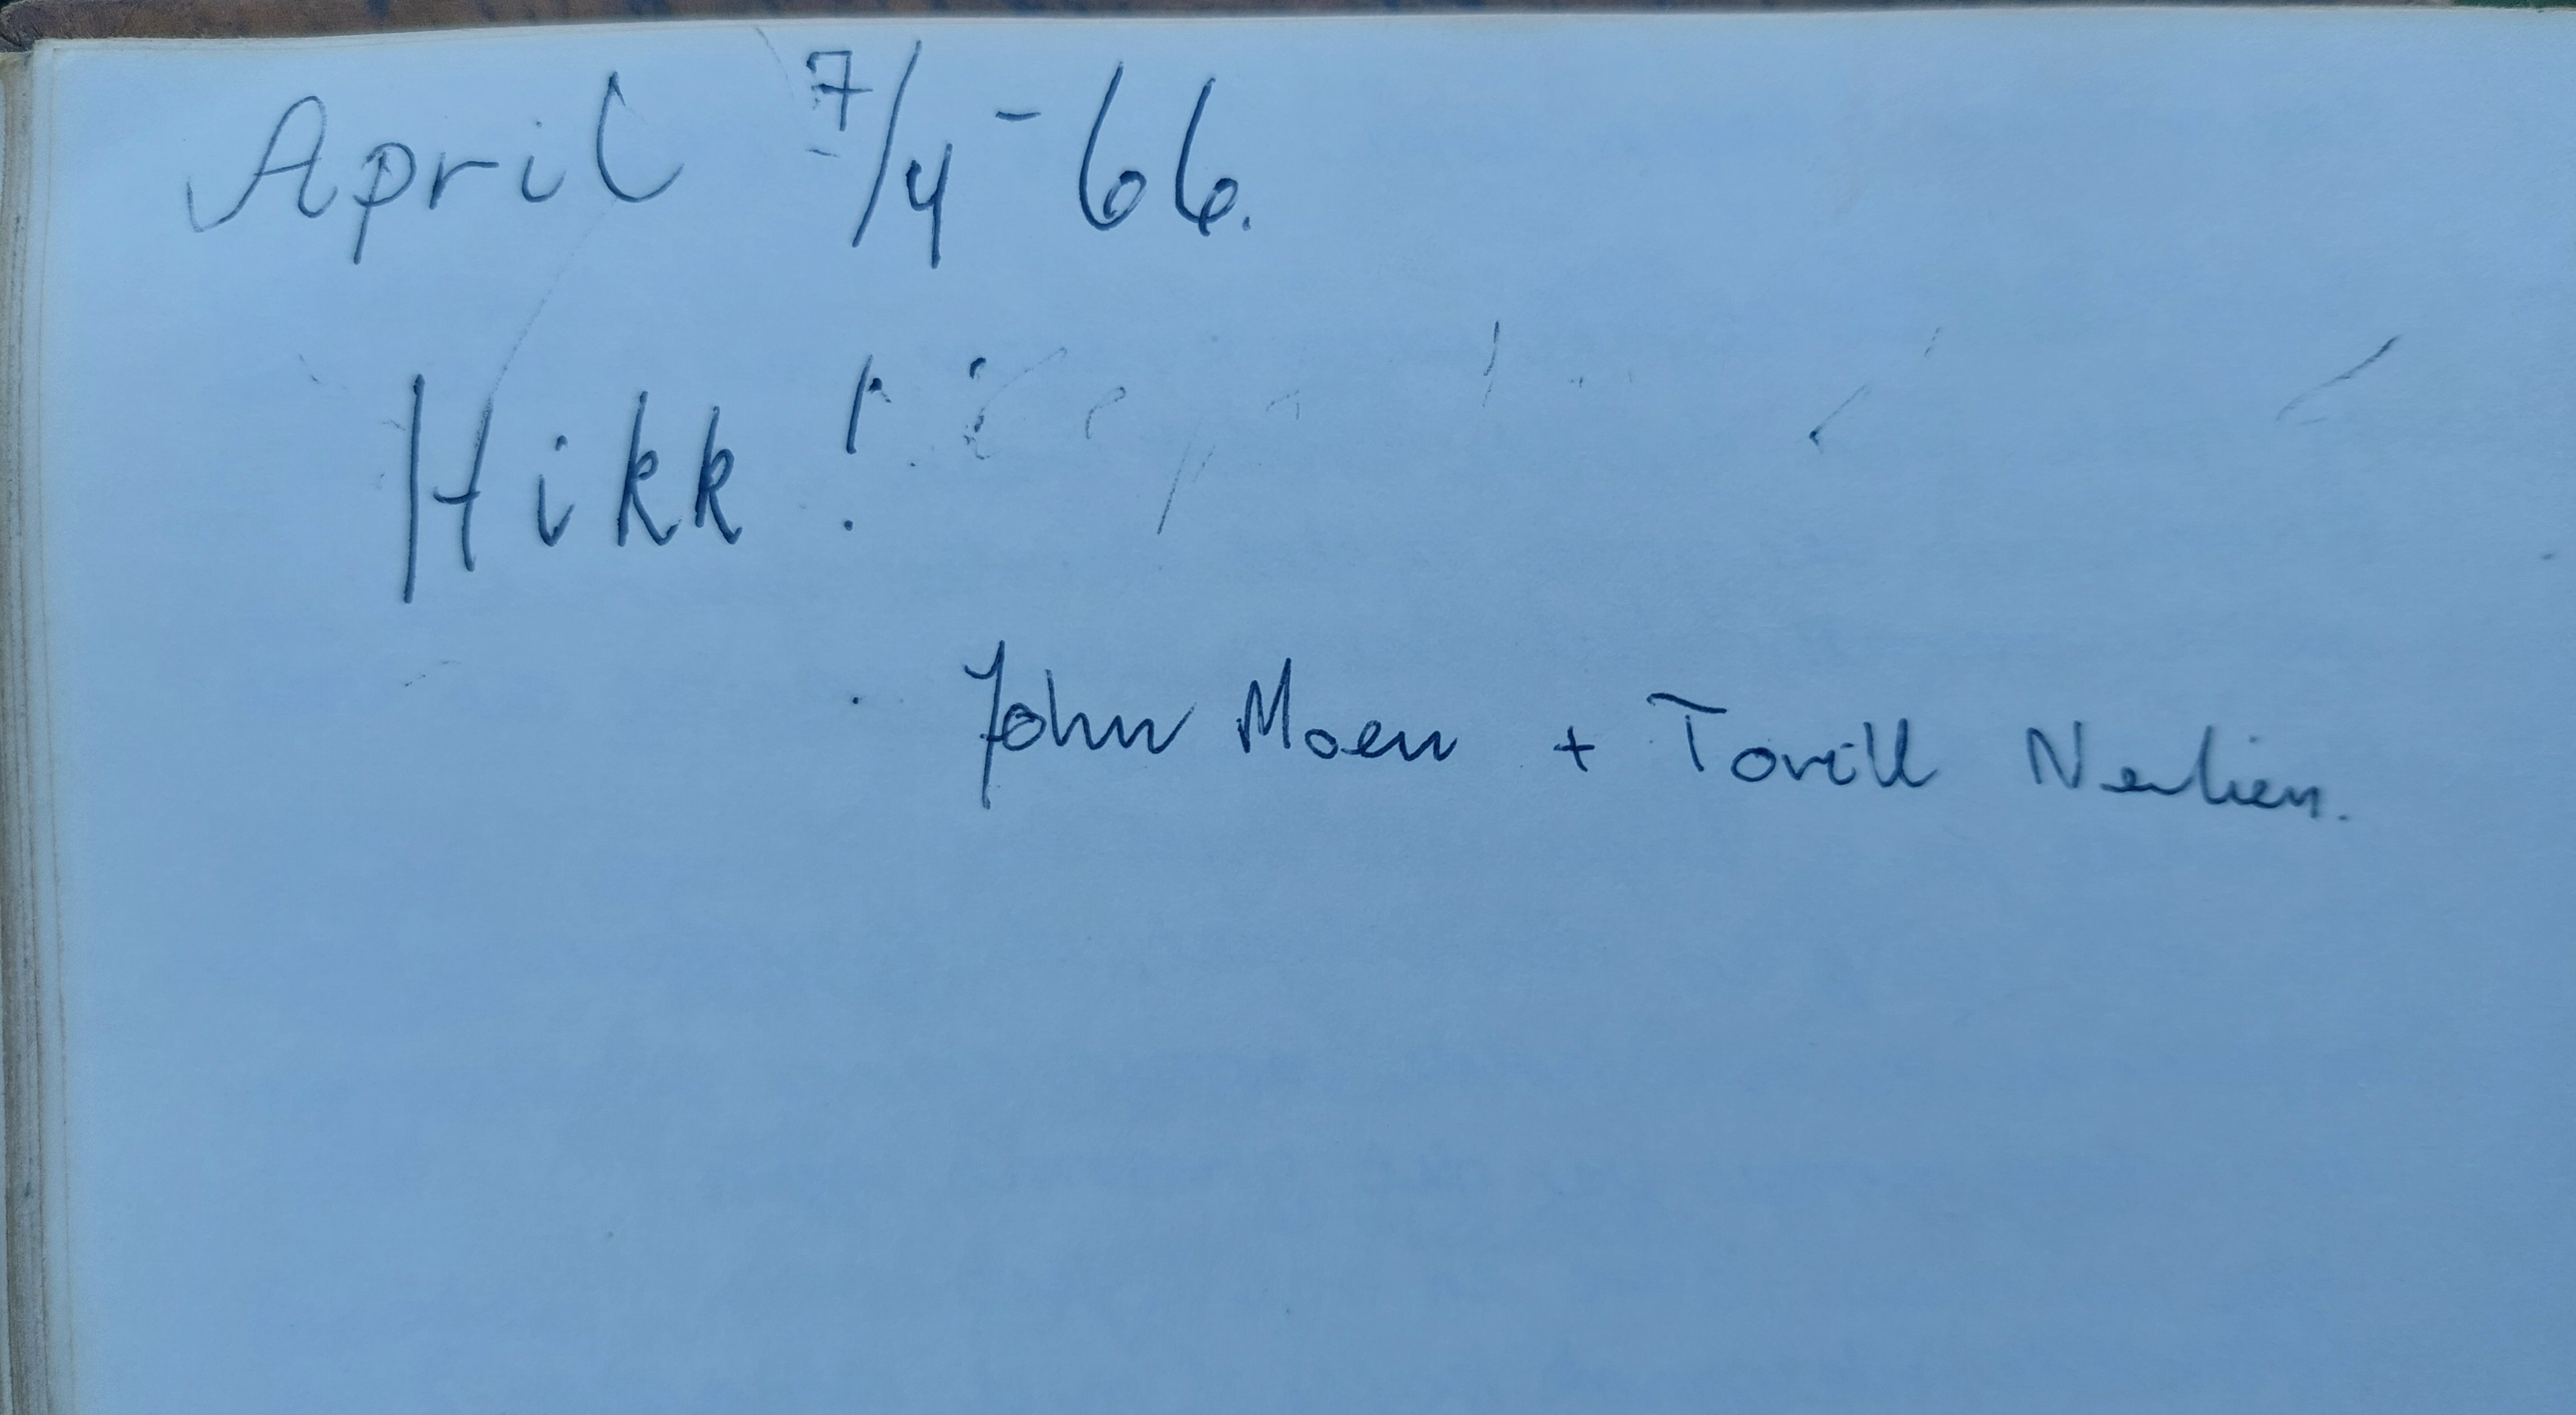 April 7/4-66.
Hikk!
John Moen + Torill Nerlien.